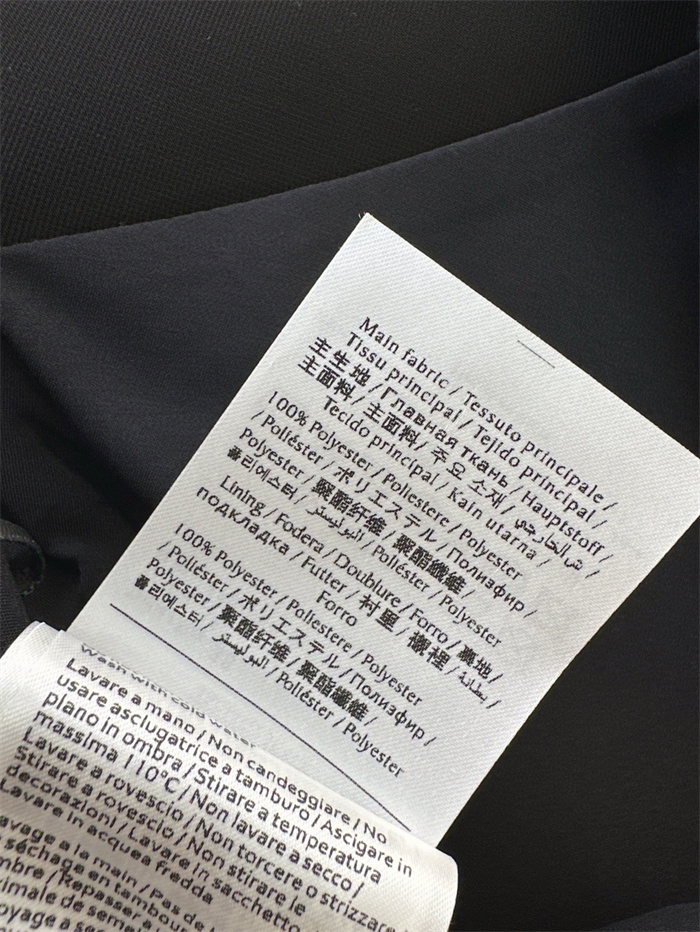 Main fabric / Tessuto principale /
Tissu principal / Tejido principal /
主生地 / Главная ткань / Hauptstoff /
主面料 / 主面料 / 주요 소재 /
Tecido principal / Kain utama /
100% Polyester / Poliestere / Polyester
/ Poliéster / ポリエステル / Полиэфир /
Polyester / 聚酯纤维 / 聚酯纖維 /
폴리에스터 / البوليستر / Poliéster / Polyester
Lining / Fodera / Doublure / Forro / 裏地 /
подкладка / Futter / 村里 / 襯裡 / بطانة /
Forro
100% Polyester / Poliestere / Polyester
/ Poliéster / ポリエステル / Полиэфир /
Polyester / 聚酯纤维 / 聚酯纖維 /
폴리에스터 / البوليستر / Poliéster / Polyester
Lavare a mano / Non candeggiare / No
usare asciugatrice a tamburo / Ascigare in
piano in ombra / Stirare a temperatura
massima 110°C / Non lavare a secco /
Lavare a rovescio / Non torcere o strizzare
Stirare a rovescio / Non stirare le
decorazioni / Lavare in sacchetto
Lavare in acqua fredda
avage a la main / Pas de
séchage en tambour
mbre / Repasser a